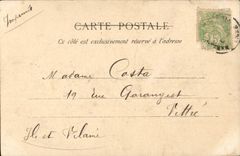 Imprimés
CARTE POSTALE
Ce côté est exclusivement réservé à l'adresse
Madame Costa
19 rue Garangeot
Vittré
Il et Vilaine